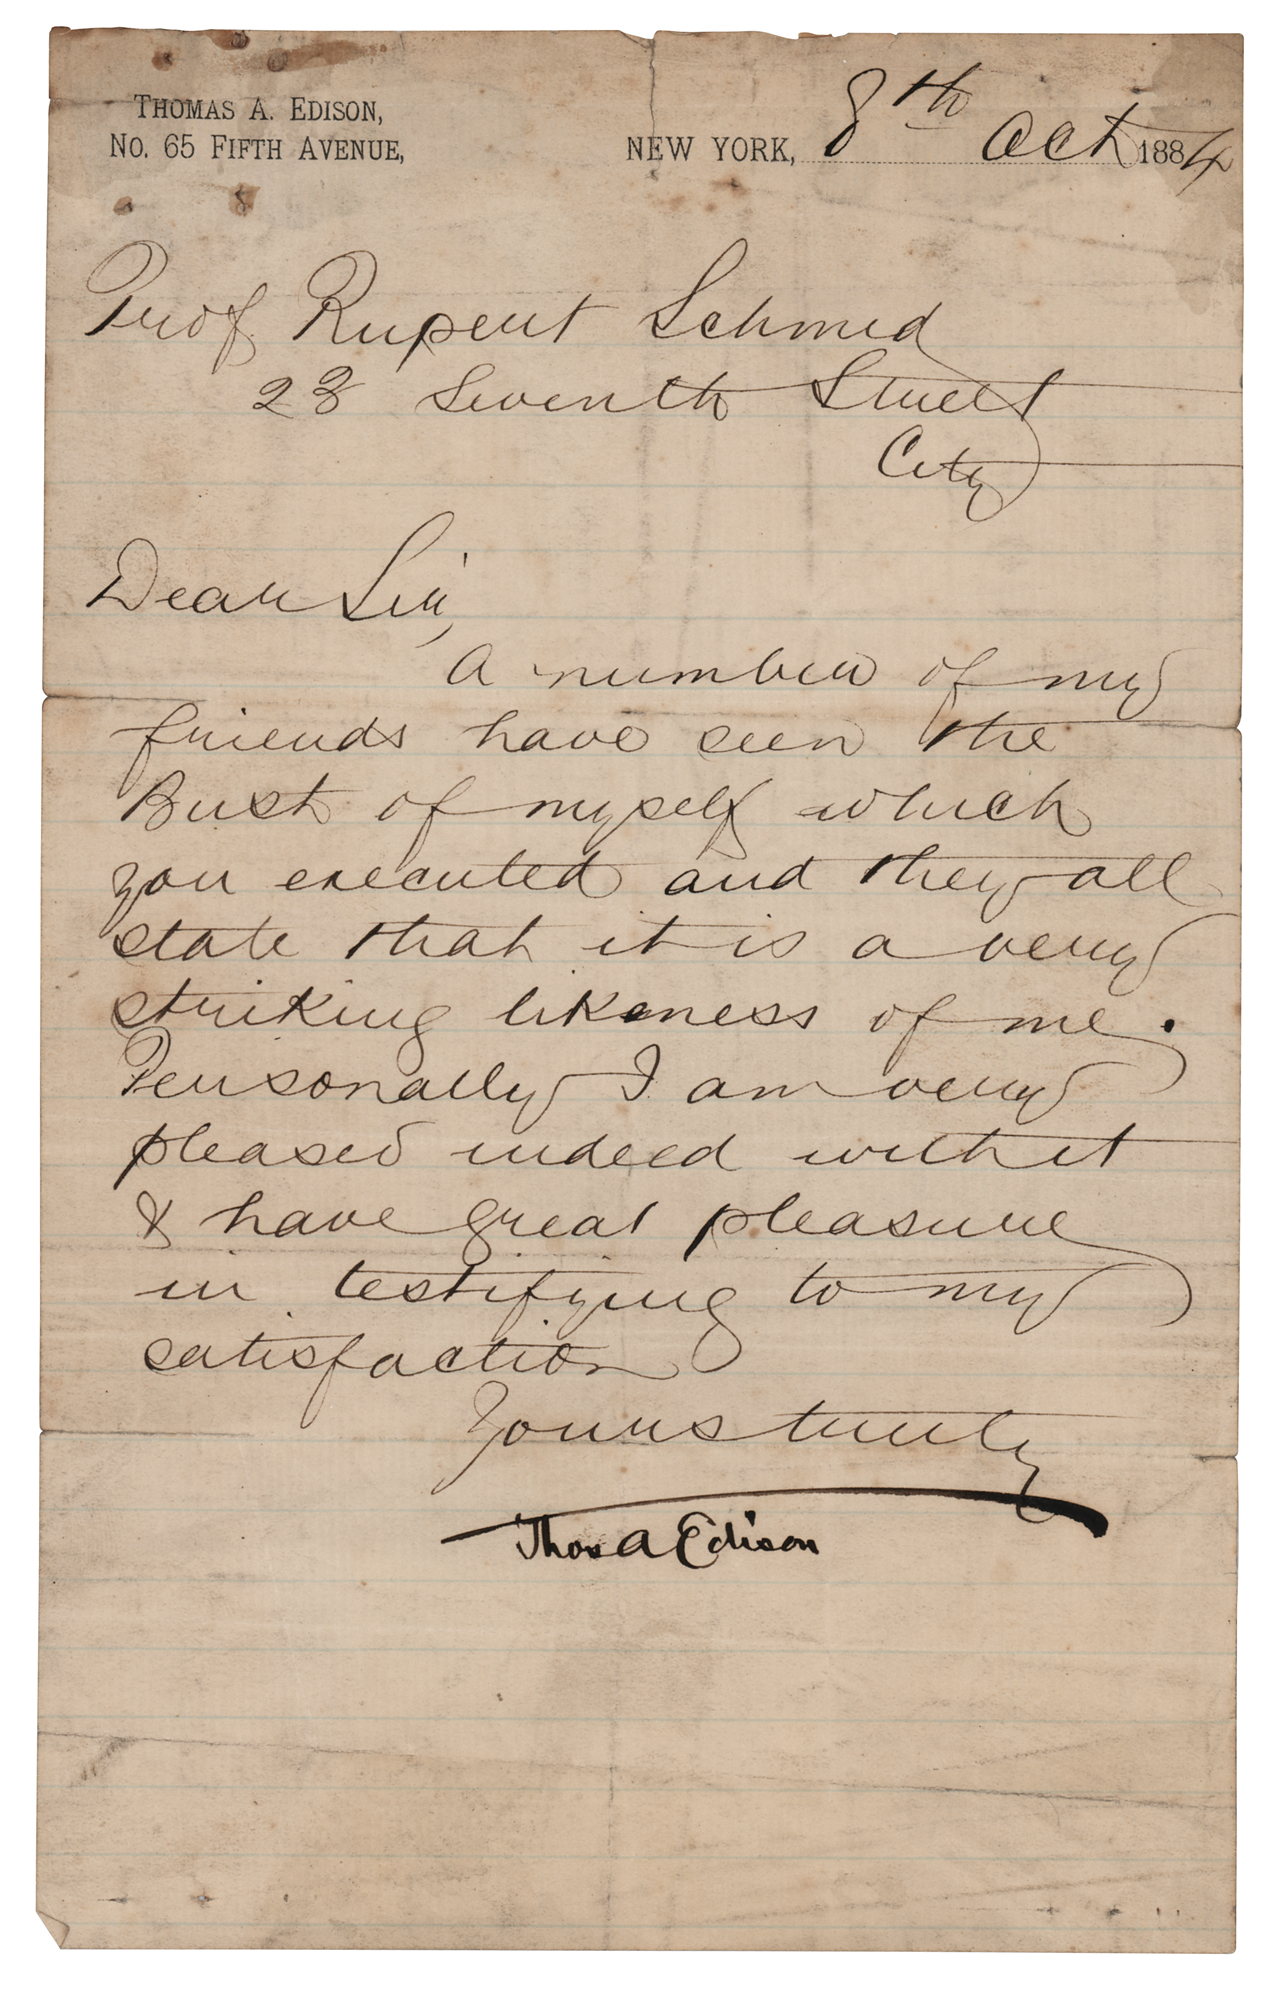 THOMAS A. EDISON,
No. 65 FIFTH AVENUE,
NEW YORK, 8th Oct 1884
Prof Rupert Schmid
28 Seventh Street
City
Dear Sir,
A number of my
friends have seen the
Bust of myself which
you executed and they all
state that it is a very
striking likeness of me.
Personally I am very
pleased indeed with it
& have great pleasure
in testifying to my
satisfaction
Yours truly
Thos A Edison